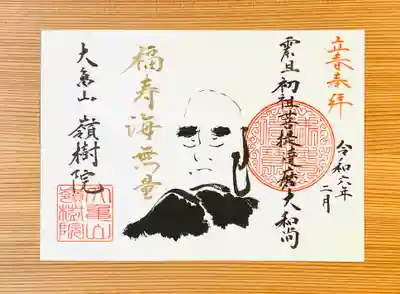 立春奉拝
令和六年
二月
震旦初祖菩提達磨大和尚
福寿海無量
大亀山
嶺樹院
大亀山
嶺樹院